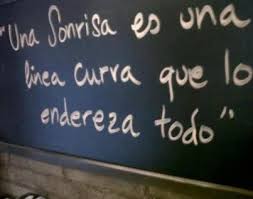 "Una Sonrisa es una
linea curva que lo
endereza todo"